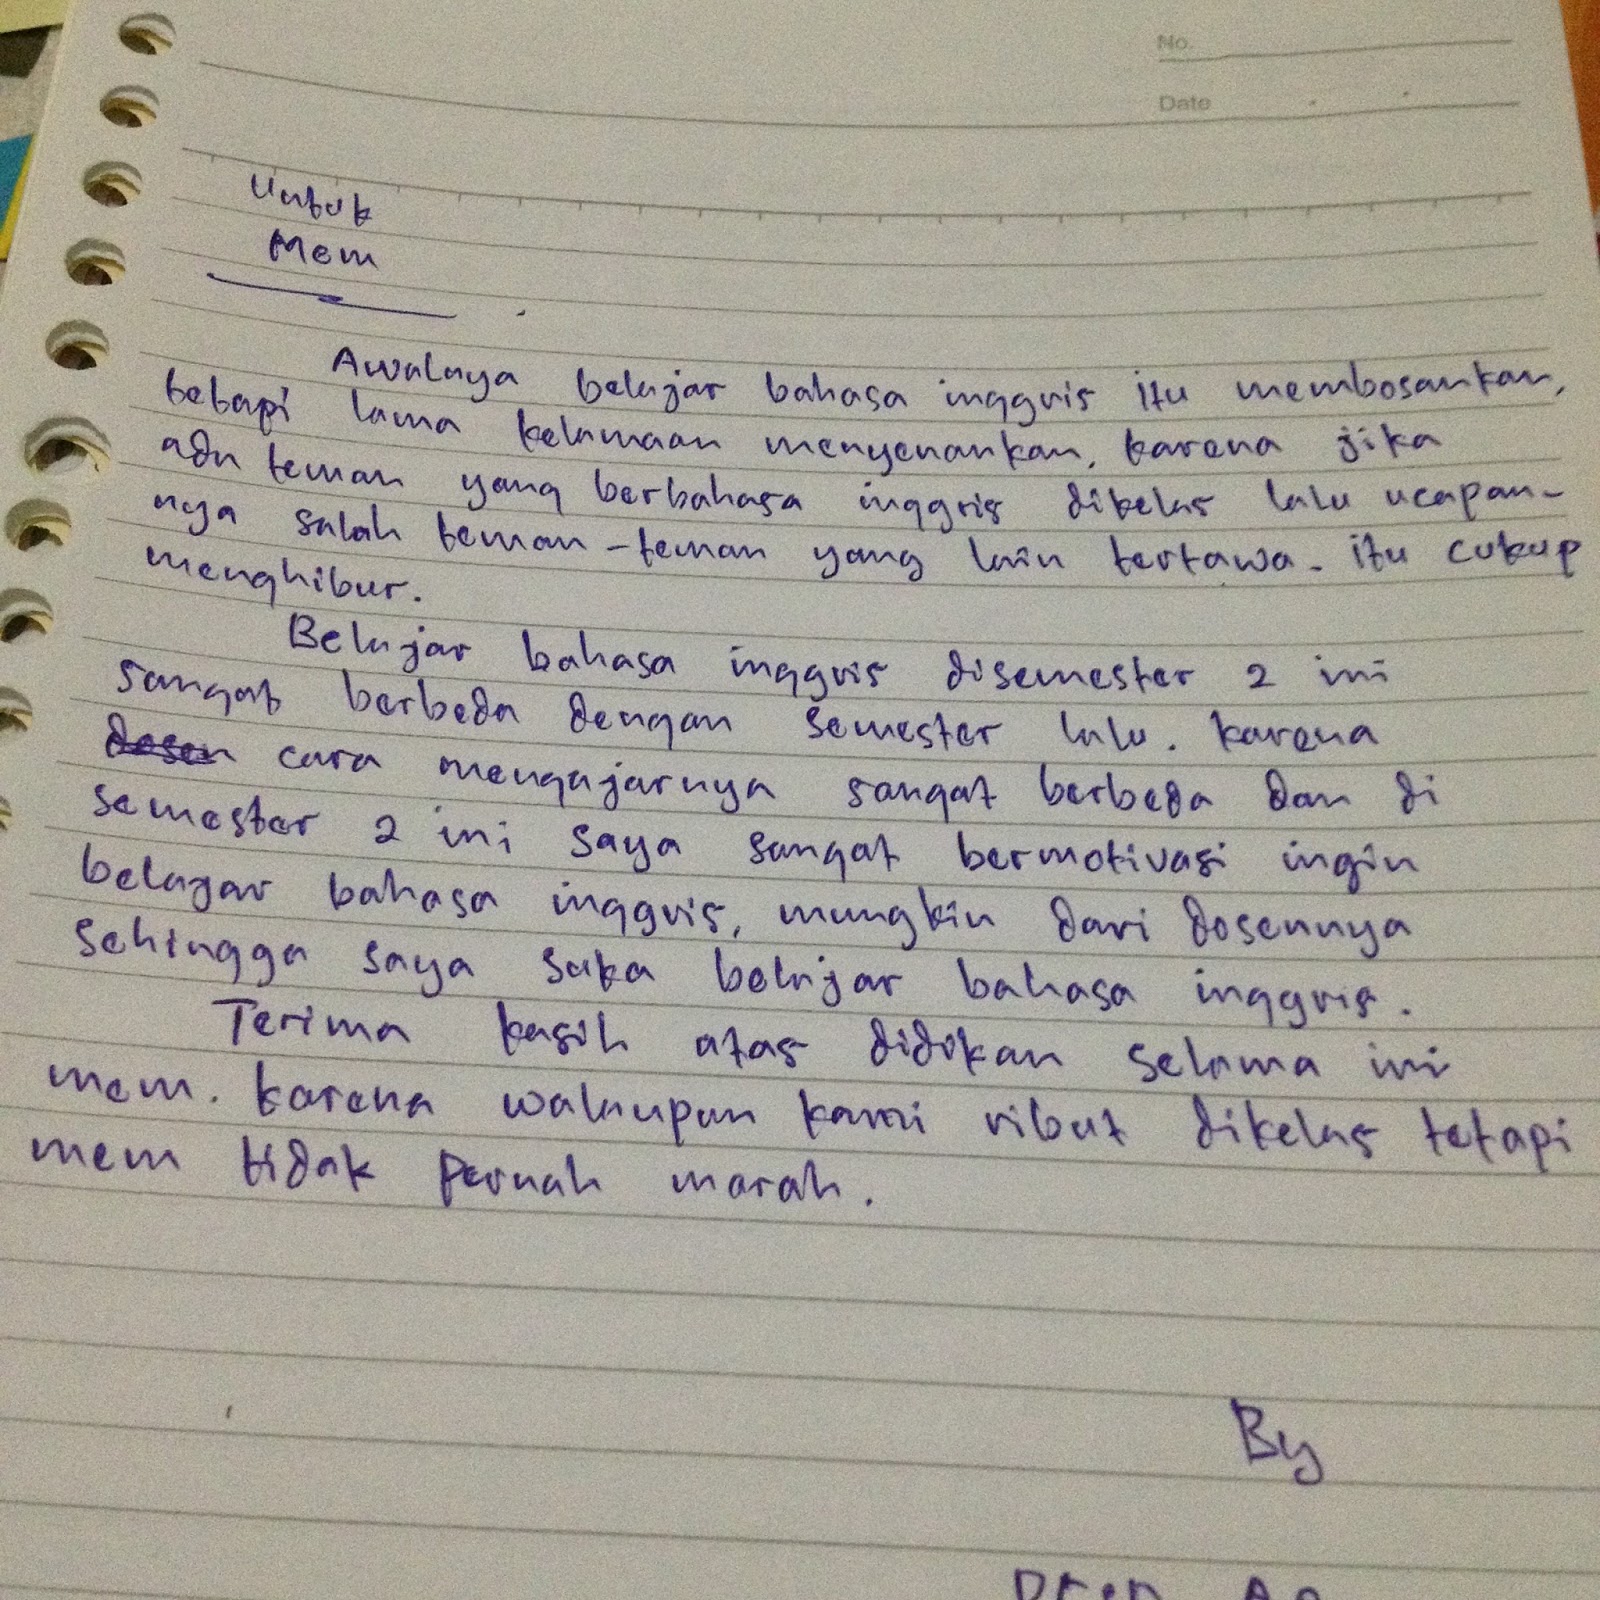 No.
Date
Untuk
Mem
Awalnya belajar bahasa inggris itu membosankan,
tetapi lama kelamaan menyenankan. karena jika
ada teman yang berbahasa inggris dikelas lalu ucapan-
nya salah teman-teman yang lain tertawa. itu cukup
menghibur.
Belajar bahasa inggris disemester 2 ini
sangat berbeda dengan semester lalu. karena
dosen cara mengajarnya sangat berbeda dan di
semester 2 ini saya sangat bermotivasi ingin
belajar bahasa inggris, mungkin dari dosennya
sehingga saya suka belajar bahasa inggris.
Terima kasih atas didikan selama ini
mem. karena walaupun kami ribut dikelas tetapi
mem tidak pernah marah.
By